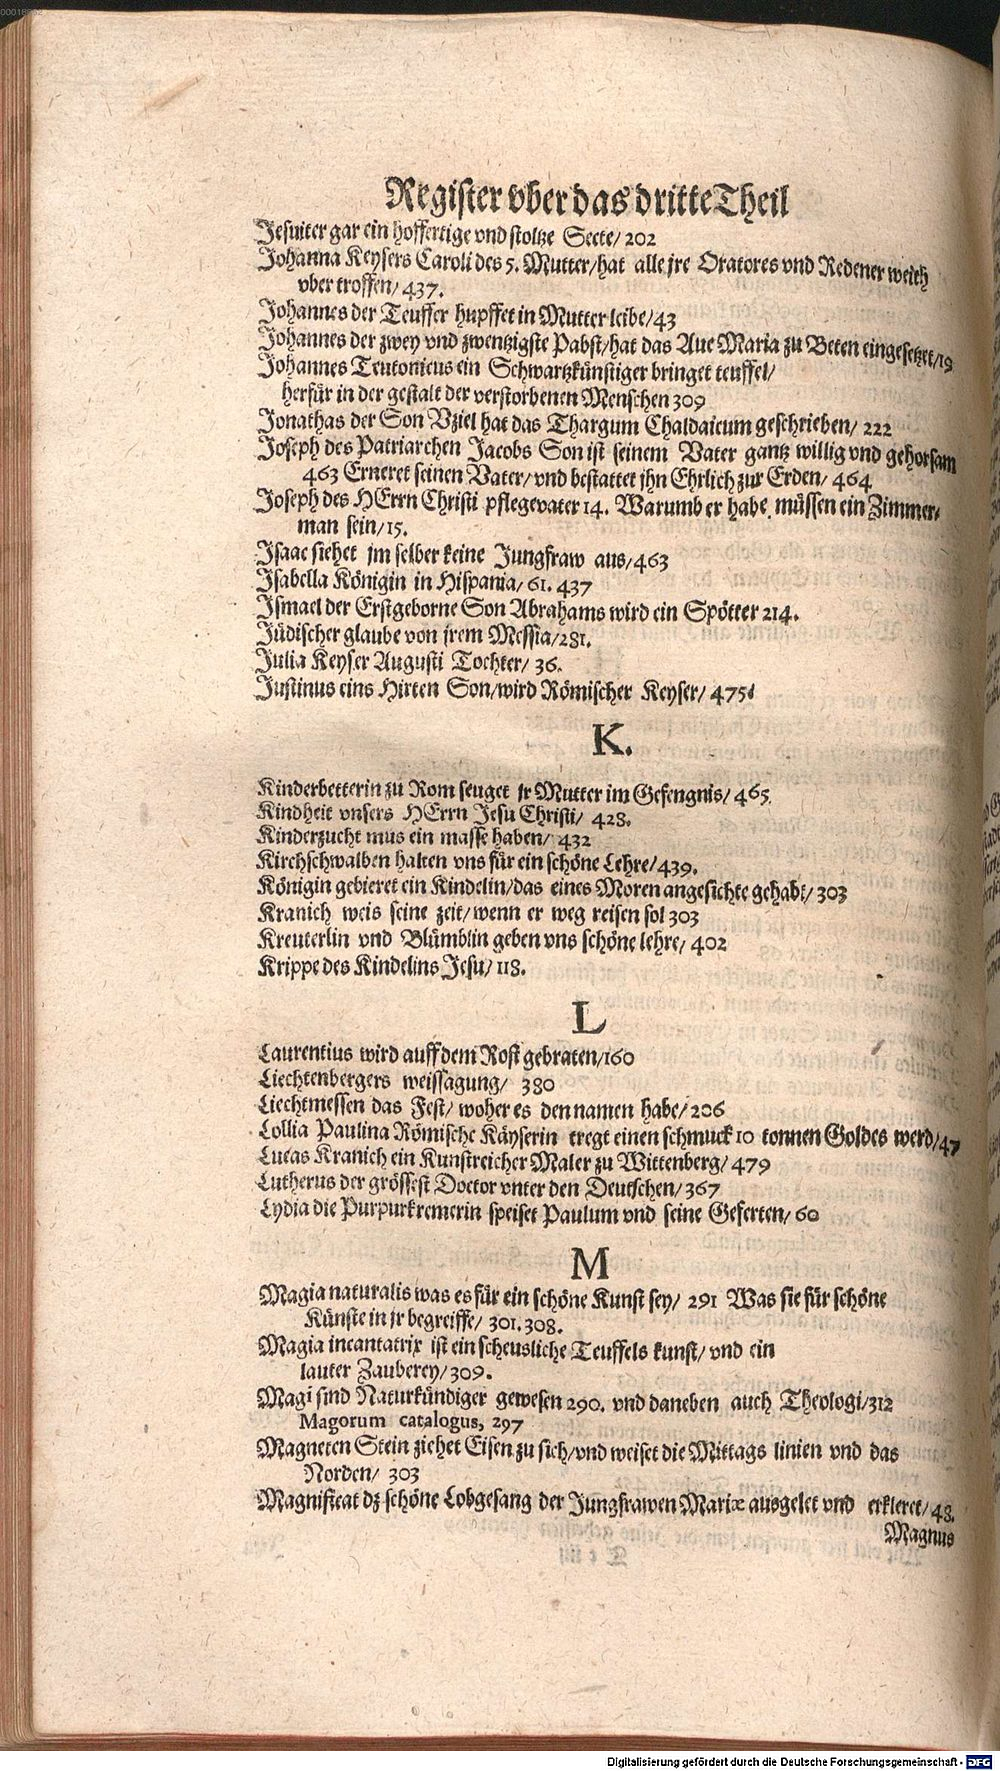 00018552
Register vber das dritte Theil
Jesuiter gar ein hoffertige vnd stoltze Secte/ 202
Johanna Keysers Caroli des 5. Mutter/hat alle jre Oratores vnd Redener weith
vber troffen/ 437.
Johannes der Teuffer hupffet in Mutter leibe/43
Johannes der zwey vnd zwentzigste Pabst/hat das Aue Maria zu Beten eingesetzet/19
Johannes Teutonicus ein Schwartzkünstiger bringet teuffel/
herfür in der gestalt der verstorbenen Menschen 309
Jonathas der Son Vziel hat das Thargum Chaldaicum geschrieben/ 222
Joseph des Patriarchen Jacobs Son ist seinem Vater gantz willig vnd gehorsam
463 Erneret seinen Vater/ vnd bestattet jhn Ehrlich zur Erden/ 464
Joseph des HErrn Christi pflegevater 14. Warumb er habe müssen ein Zimmer-
man sein/ 15.
Isaac siehet jm selber keine Jungfraw aus/463
Isabella Königin in Hispania/ 61. 437
Ismael der Erstgeborne Son Abrahams wird ein Spötter 214.
Jüdischer glaube von jrem Messia/281.
Julia Keyser Augusti Tochter/ 36.
Justinus eins Hirten Son/wird Römischer Keyser/ 475.
K.
Kinderbetterin zu Rom seuget jr Mutter im Gefengnis/ 465.
Kindheit vnsers HErrn Jesu Christi/ 428.
Kinderzucht mus ein masse haben/ 432
Kirchschwalben halten vns für ein schöne Lehre/439.
Königin gebieret ein Kindelin/das eines Moren angesichte gehabt/ 303
Kranich weis seine zeit/wenn er weg reisen sol 303
Kreuterlin vnd Blümblin geben vns schöne lehre/ 402
Krippe des Kindelins Jesu/ 118.
L
Laurentius wird auff dem Rost gebraten/160
Liechtenbergers weissagung/ 380
Liechtmessen das Fest/ woher es den namen habe/ 206
Lollia Paulina Römische Käyserin tregt einen schmuck 10 tonnen Goldes werd/47
Lucas Kranich ein Kunstreicher Maler zu Wittenberg/ 479
Lutherus der grössest Doctor vnter den Deutschen/ 367
Lydia die Purpurkremerin speiset Paulum vnd seine Geferten/ 60
M
Magia naturalis was es für ein schöne Kunst sey/ 291 Was sie für schöne
Künste in jr begreiffe/ 301. 308.
Magia incantatrix ist ein scheusliche Teuffels kunst/ vnd ein
lauter Zauberey/ 309.
Magi sind Naturkündiger gewesen 290. vnd daneben auch Theologi/312
Magorum catalogus, 297
Magneten Stein ziehet Eisen zu sich/vnd weiset die Mittags linien vnd das
Norden/ 303
Magnificat dz schöne Lobgesang der Jungfrawen Mariæ ausgelet vnd erkleret/ 48.
Magnus
Digitalisierung gefördert durch die Deutsche Forschungsgemeinschaft - DFG